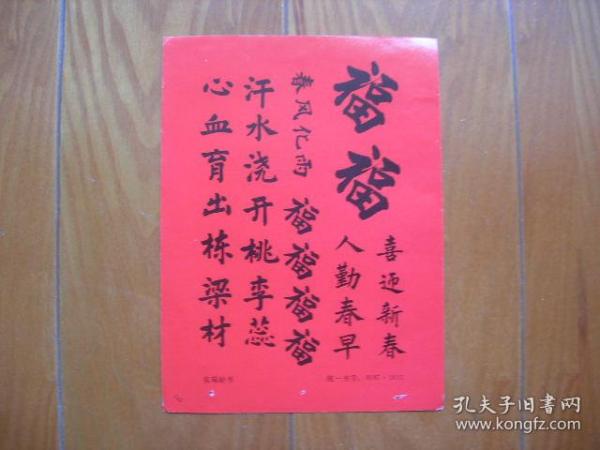 福福
喜迎新春
人勤春早
春风化雨
福福福福
汗水浇开桃李蕊
心血育出栋梁材
孔夫子旧書网
www.kongfz.com